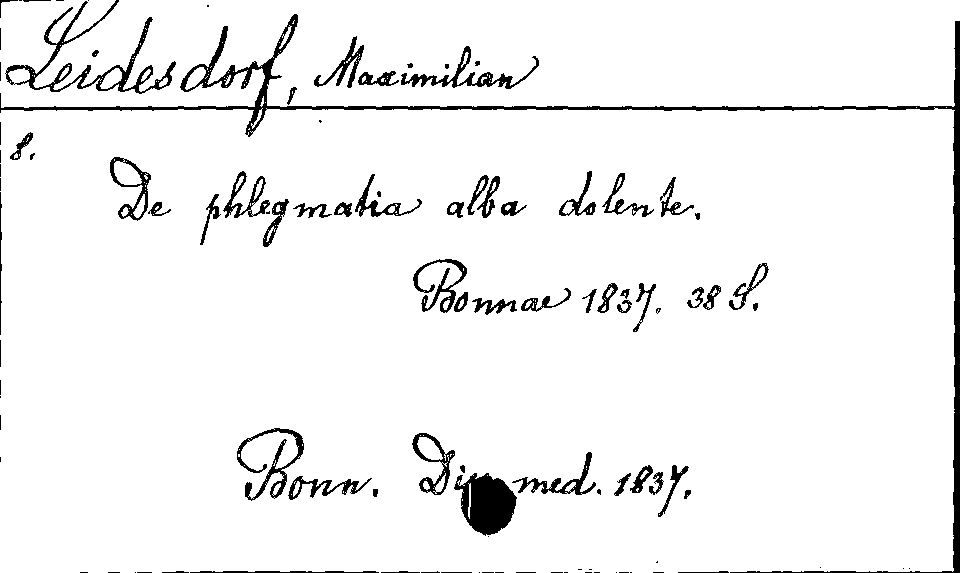 Leidesdorf, Maximilian
8.
De phlegmatia alba dolente.
Bonnae 1837. 38 S.
Bonn. Diss. med. 1837.